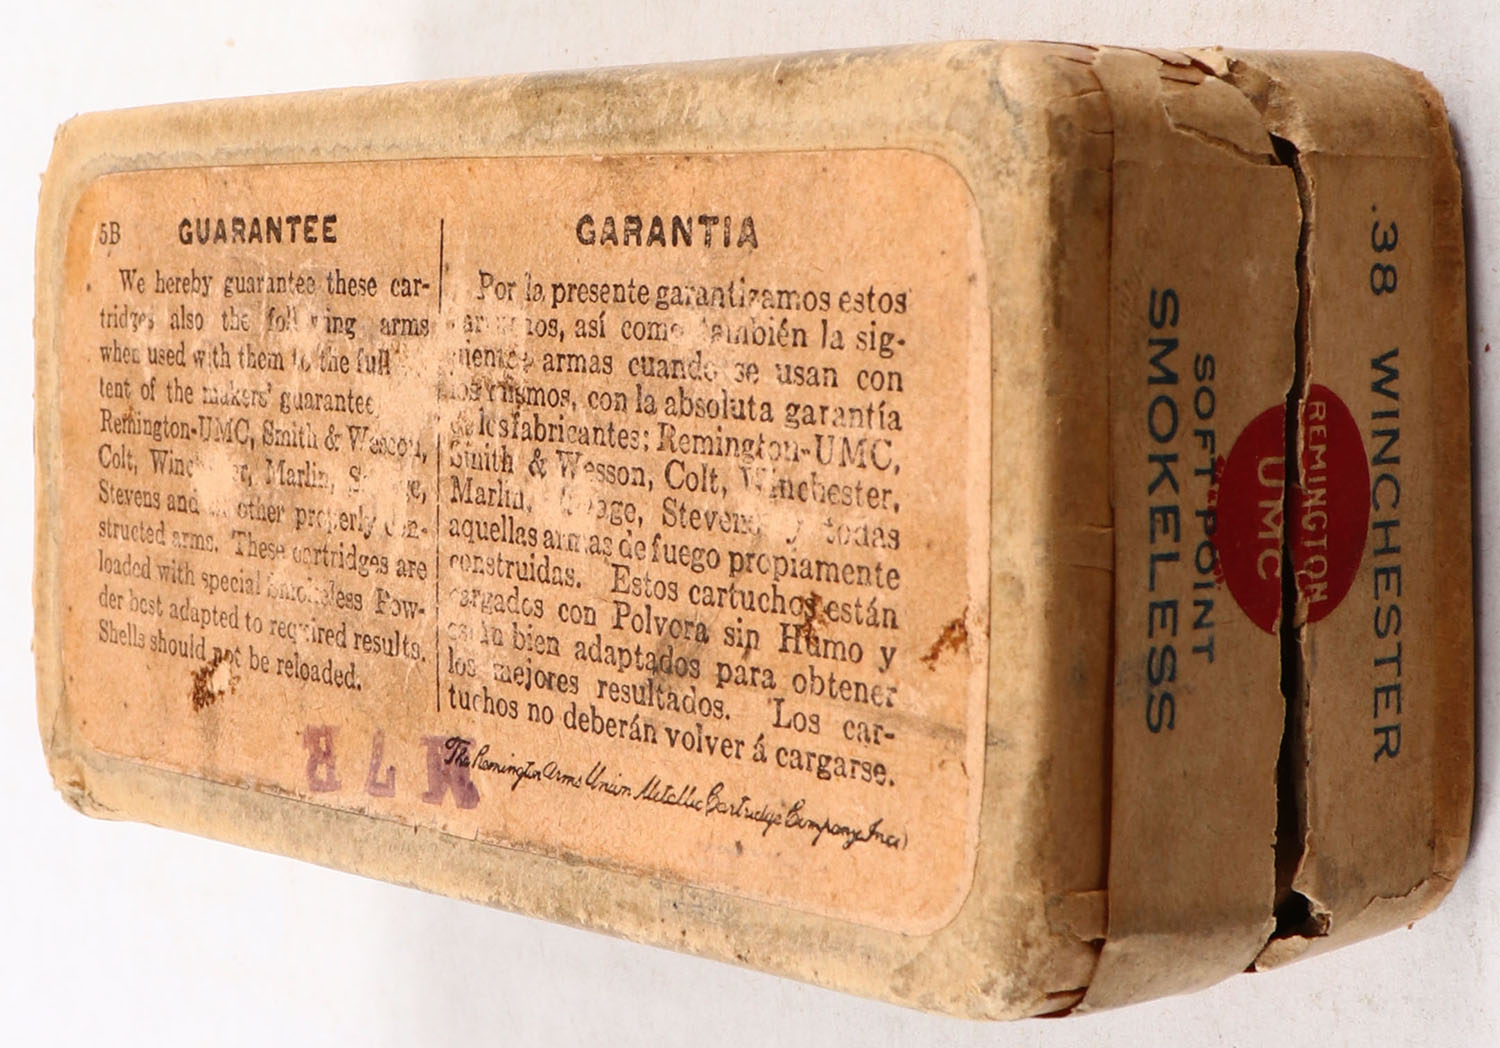 5B GUARANTEE
We hereby guarantee these car-
tridges also the following arms
when used with them to the full
tent of the makers' guarantee
Remington-UMC, Smith & Wesson,
Colt, Winchester, Marlin, Savage,
Stevens and other properly con-
structed arms. These cartridges are
loaded with special Smokeless Pow-
der best adapted to required results.
Shells should not be reloaded.
GARANTIA
Por la presente garantizamos estos
asi como también la sig-
uientes armas cuando se usan con
los mismos, con la absoluta garantía
de los fabricantes: Remington-UMC,
Smith & Wesson, Colt, Winchester,
Marlin, Savage, Stevens y todas
aquellas armas de fuego propiamente
construidas. Estos cartuchos están
cargados con Polvora sin Humo y
están bien adaptados para obtener
los mejores resultados. Los car-
tuchos no deberán volver á cargarse.
The Remington Arms Union Metallic Cartridge Company, Inc.
R 7 R
.38 WINCHESTER
REMINGTON
UMC
SOFT POINT
SMOKELESS